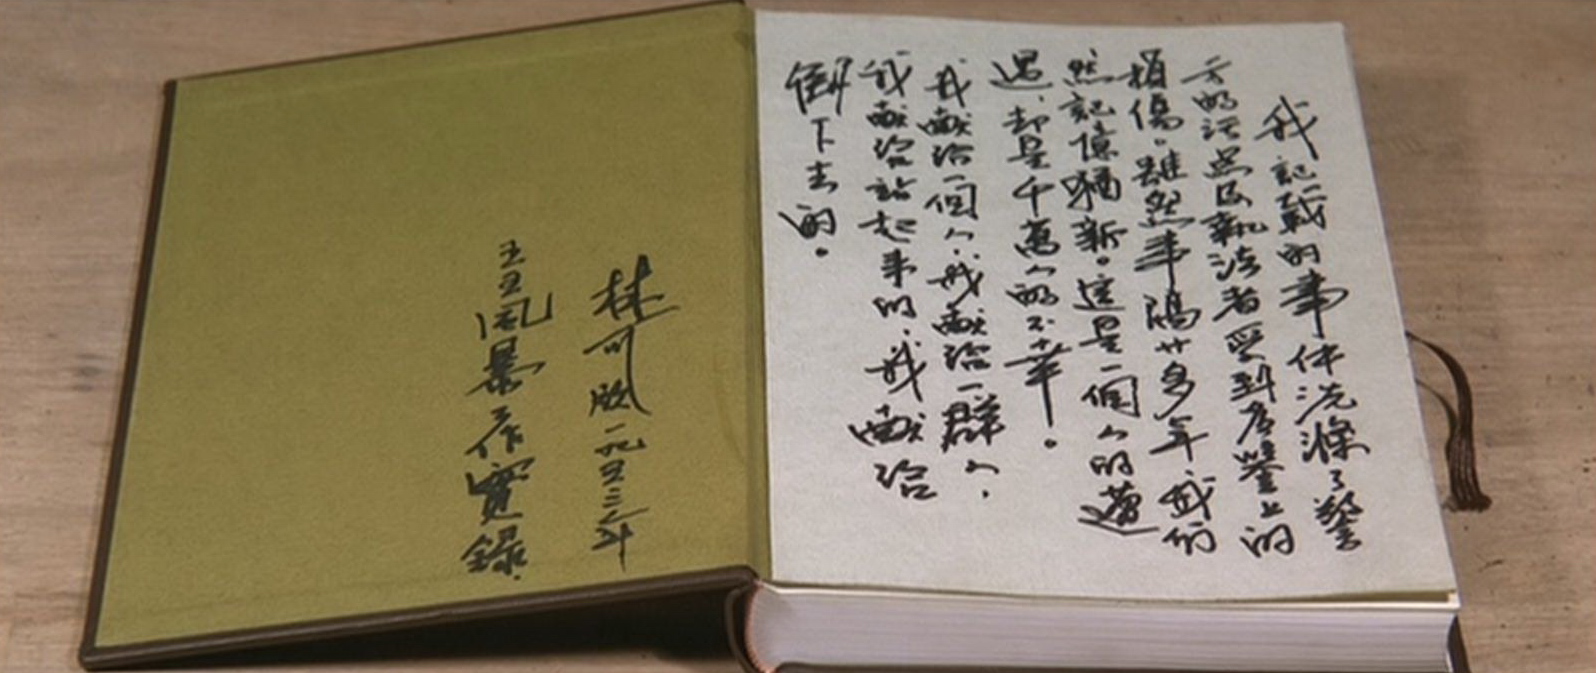 我記載的事件洗滌了警
方的污點及執法者受到声譽上的
損傷。雖然事隔廿多年我仍
然記憶猶新。這是一個人的遭
遇,却是千萬人的不幸。
我獻給一個人,我獻給一群人,
我獻給站起来的,我獻給
倒下去的。
林可 一九五三年
五五風暴工作實錄.